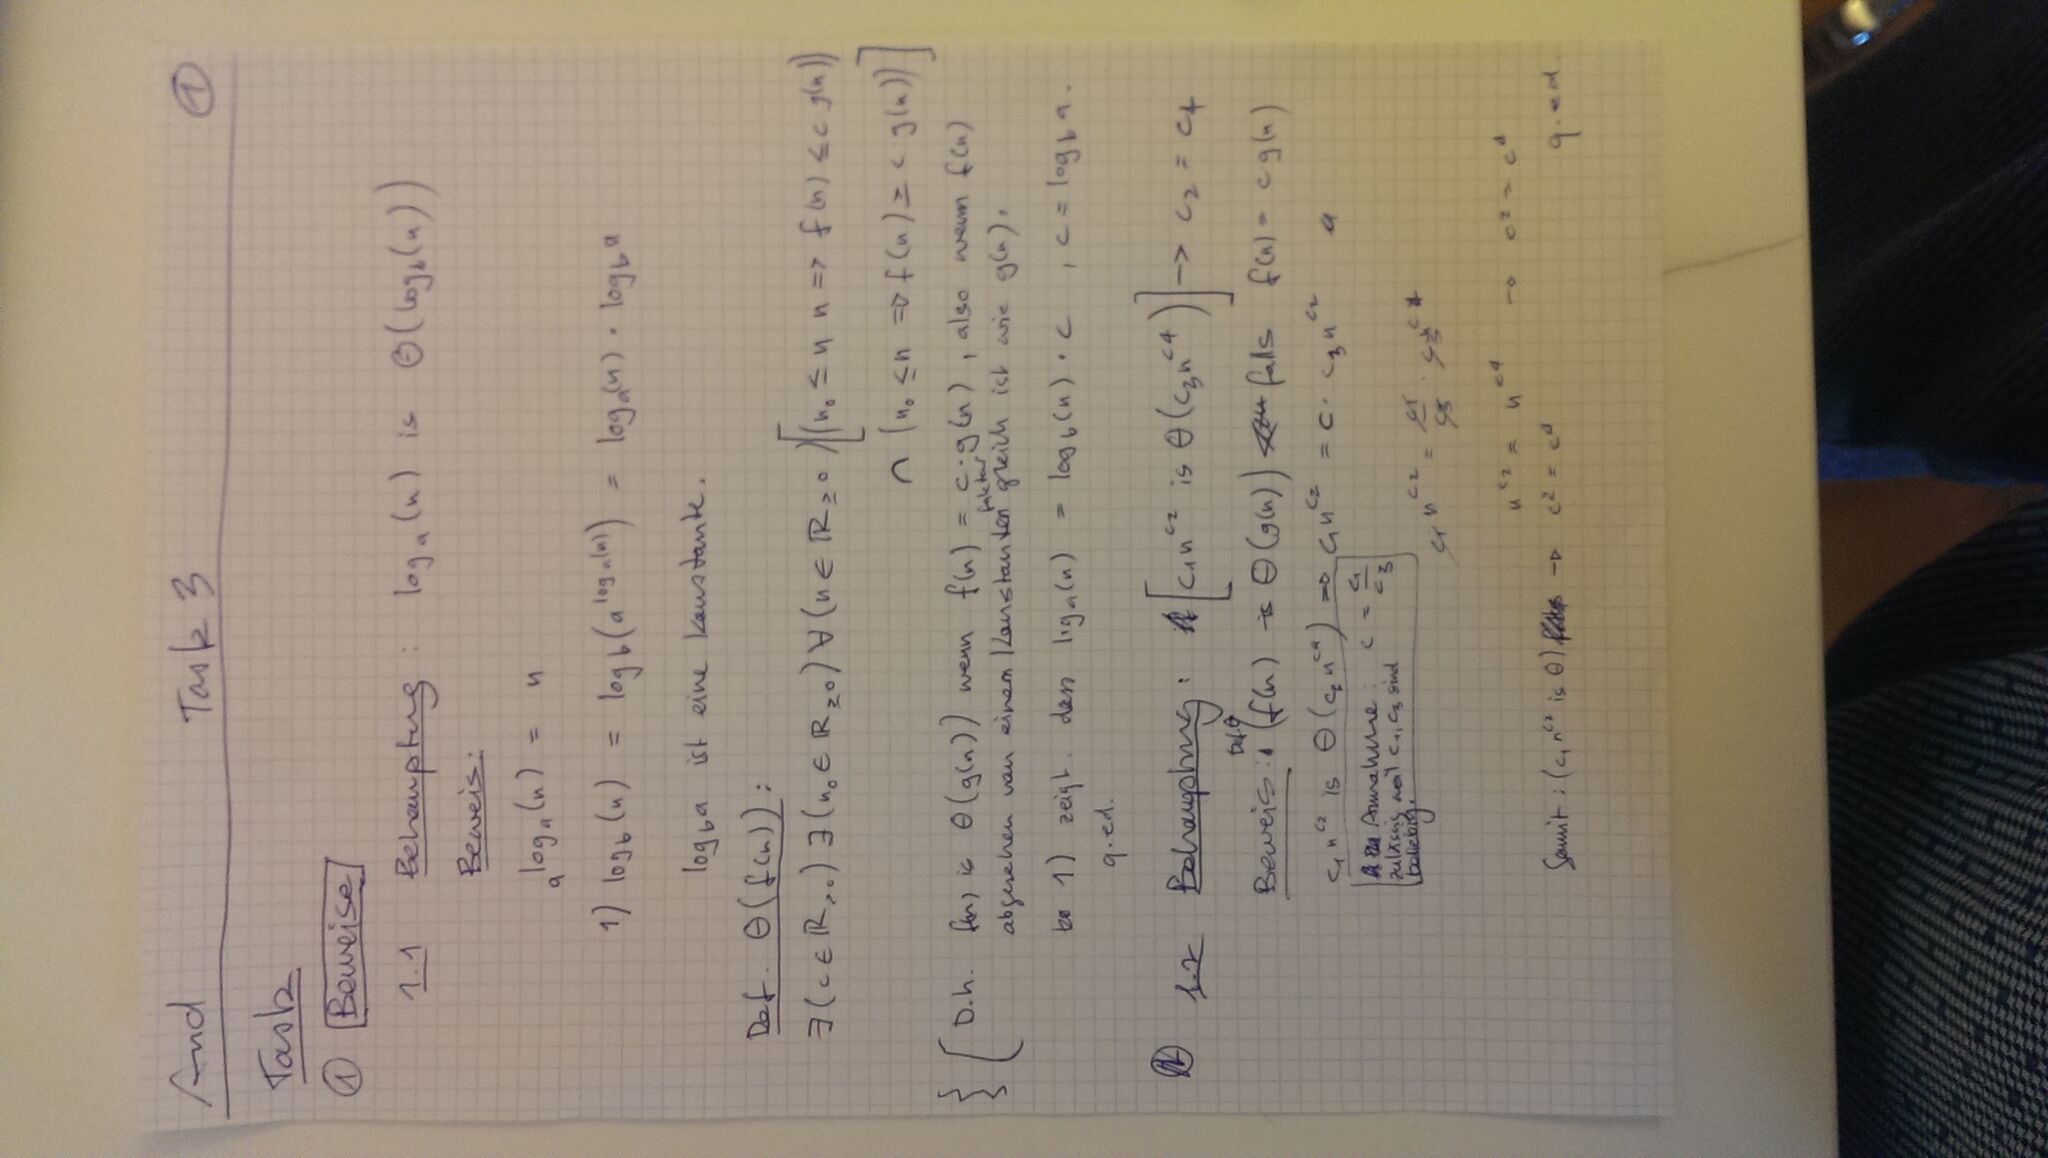 And Task 3 ①
Task
① Beweise
1.1 Behauptung : logₐ(n) is Θ(log_b(n))
Beweis:
a^logₐ(n) = n
1) log_b(n) = log_b(a^logₐ(n)) = logₐ(n) · log_b a
log_b a ist eine Konstante.
Def. Θ(f(n)) :
∃(c ∈ ℝ>0) ∃(n₀ ∈ ℝ≥0) ∀(n ∈ ℝ≥0)[(n₀ ≤ n n => f(n) ≤ c g(n))
∩ (n₀ ≤ n => f(n) ≥ c g(n))]
D.h. f(n) is Θ(g(n)) wenn f(n) = c·g(n), also wenn f(n)
abgesehen von einem Konstanten faktor gleich ist wie g(n).
1) zeigt. dass logₐ(n) = log_b(n) · c , c = log_b a.
q.ed.
1.2 Behauptung : [c₁n^c2 is Θ(c₃n^c4)] -> c₂ = c₄
Beweis : Def.Θ (f(n) is Θ(g(n)) falls f(n) = c g(n)
c₁n^c2 is Θ(c₃n^c4) => c₁n^c2 = c · c₃n^c2
Annahme : c = c₁/c₃
zulässig weil c₁, c₃ sind
beliebig.
c₁n^c2 = c₁/c₃ · c₃n^c4
n^c2 = n^c4 -> c² = c⁴
Somit : (c₁n^c2 is Θ) -> c² = c⁴ q.ed.